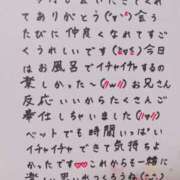 てありがとう(^o^)会う
たびに仲良くなれてすご
くうれしいです(≧▽≦)今日
はお風呂でイチャイチャするの
楽しかった~(//∇//)お兄さん
反応いいからたくさんご
奉仕しちゃいました(//∇//)
ベットでも時間いっぱい
イチャイチャできて気持ちよ
かったです♡これからも一緒に